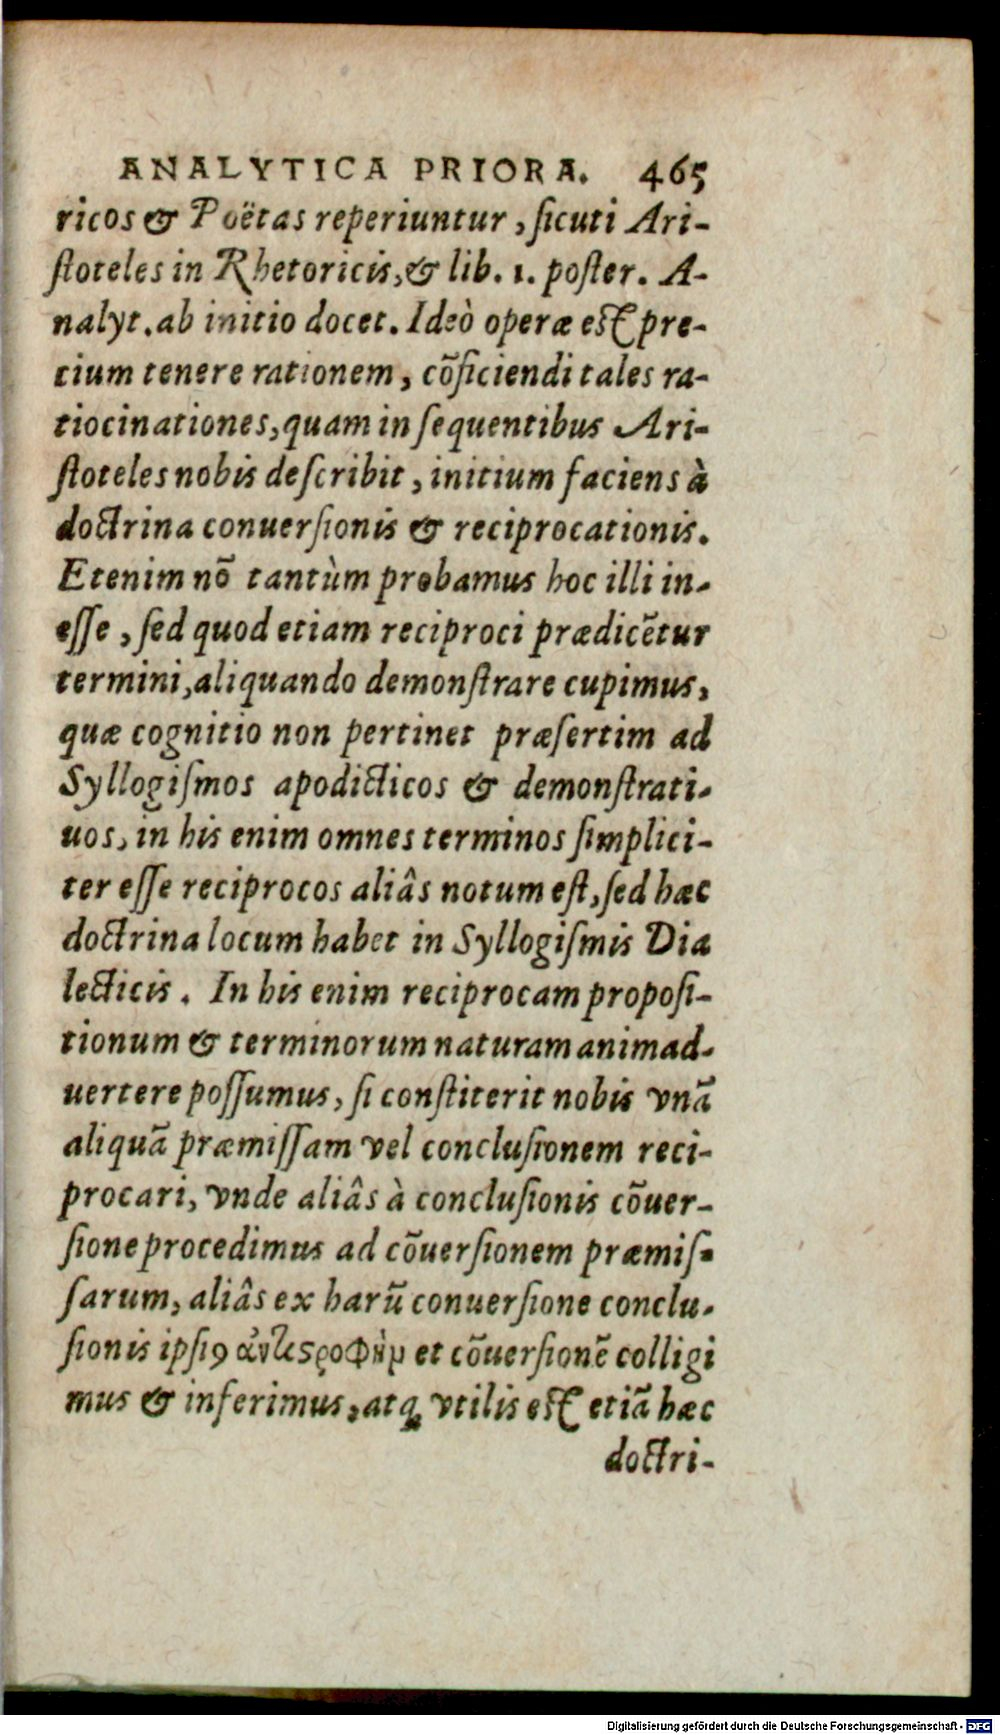 ANALYTICA PRIORA. 465
ricos & Poëtas reperiuntur, ſicuti Ari-
ſtoteles in Rhetoricis, & lib. 1. poſter. A-
nalyt. ab initio docet. Ideò operæ eſt pre-
cium tenere rationem, cõficiendi tales ra-
tiocinationes, quam in ſequentibus Ari-
ſtoteles nobis deſcribit, initium faciens à
doctrina conuerſionis & reciprocationis.
Etenim nõ tantùm probamus hoc illi in-
eſſe, ſed quod etiam reciproci prædicẽtur
termini, aliquando demonſtrare cupimus,
quæ cognitio non pertinet præſertim ad
Syllogiſmos apodicticos & demonſtrati-
uos, in his enim omnes terminos ſimplici-
ter eſſe reciprocos aliâs notum eſt, ſed hæc
doctrina locum habet in Syllogiſmis Dia
lecticis. In his enim reciprocam propoſi-
tionum & terminorum naturam animad-
uertere poſſumus, ſi conſtiterit nobis vnã
aliquã præmiſſam vel concluſionem reci-
procari, vnde aliâs à concluſionis cõuer-
ſione procedimus ad cõuerſionem præmiſ-
ſarum, aliâs ex harũ conuerſione conclu-
ſionis ipſiꝰ ἀντιστροφὴμ et cõuerſionẽ colligi
mus & inferimus, atq; vtilis eſt etiã hæc
doctri-
Digitalisierung gefördert durch die Deutsche Forschungsgemeinschaft - DFG